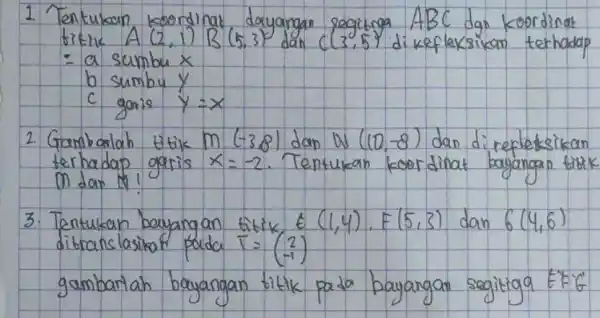 1 Tentukan koordinat dayangan segitiga ABC dan koordinat
titik A (2,1) B (5,3) dan C(3,5) direfleksikan terhadap
= a sumbu x
b sumbu y
c garis y=x
2 Gambarlah titik M (-3,8) dan N (10,-8) dan direpleksikan
terhadap garis x = -2. Tentukan koordinat bayangan titik
M dan N!
3. Tentukan bayangan titik E (1,4), F(5,3) dan G(4,6)
ditranslasikan pada T = (2 -1)
gambarlah bayangan titik pada bayangan segitiga EFG